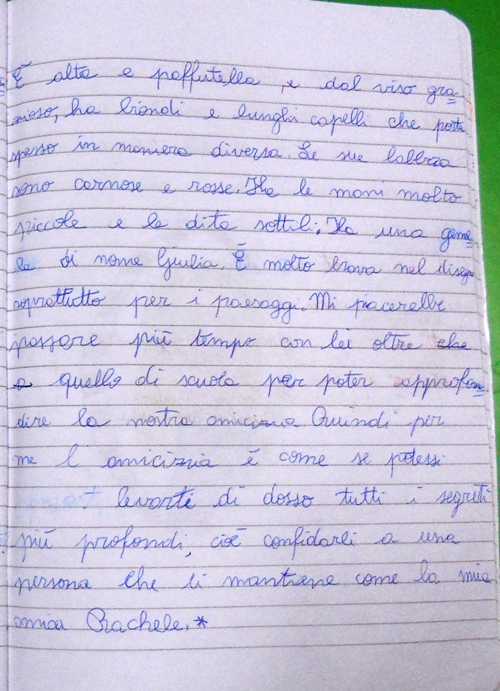 È alta e paffutella, e dal viso gra
zioso, ha biondi e lunghi capelli che porta
spesso in maniera diversa. Le sue labbra
sono carnose e rosse. Ha le mani molto
piccole e le dita sottili; Ha una gemel
la di nome Giulia. È molto brava nel disegno
soprattutto per i paesaggi. Mi piacerebbe
passare più tempo con lei oltre che
a quello di scuola per poter approfon
dire la nostra amicizia. Quindi per
me l amicizia è come se potessi
levarti di dosso tutti i segreti
più profondi, cioè confidarli a una
persona che li mantiene come la mia
amica Rachele. *